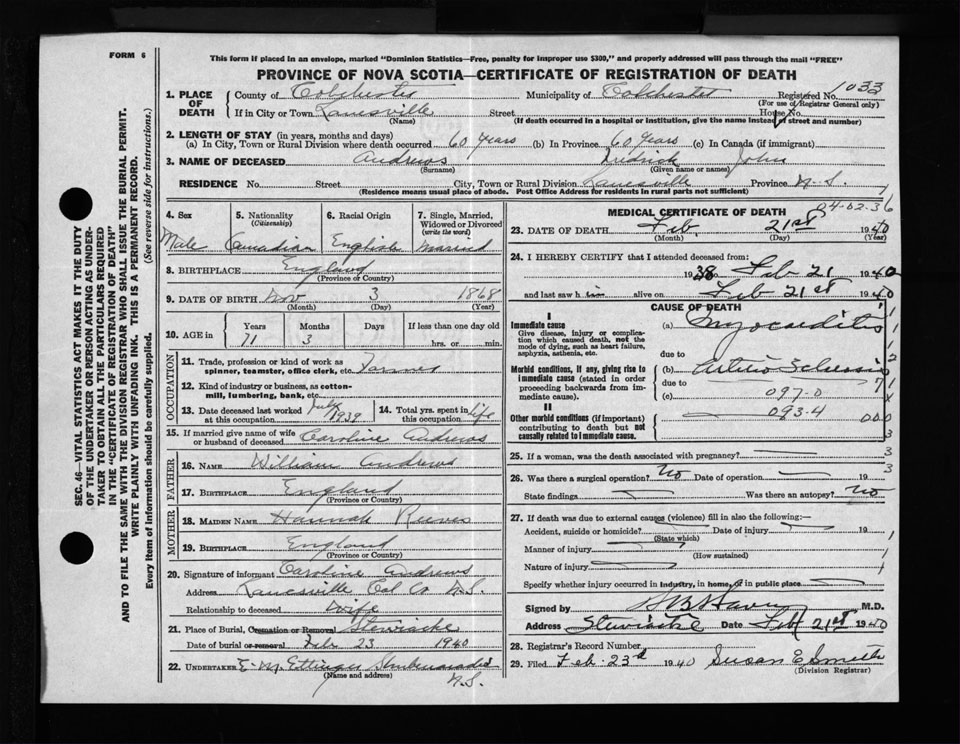 FORM 6
This form if placed in an envelope, marked "Dominion Statistics—Free, penalty for improper use $300," and properly addressed will pass through the mail "FREE"
PROVINCE OF NOVA SCOTIA—CERTIFICATE OF REGISTRATION OF DEATH
1033
1. PLACE OF DEATH County of Colchester Municipality of Colchester Registered No.
(For use of Registrar General only)
If in City or Town Lanesville Street House No.
(Name) (If death occurred in a hospital or institution, give the name instead of street and number)
2. LENGTH OF STAY (in years, months and days)
(a) In City, Town or Rural Division where death occurred 60 years (b) In Province 60 years (c) In Canada (if immigrant)
3. NAME OF DECEASED Andrews Fredrick John
(Surname) (Given name or names)
RESIDENCE No. Street City, Town or Rural Division Lanesville Province N.S.
(Residence means usual place of abode. Post Office Address for residents in rural parts not sufficient)
4. Sex Male
5. Nationality (Citizenship) Canadian
6. Racial Origin English
7. Single, Married, Widowed or Divorced (write the word) Married
8. BIRTHPLACE England
(Province or Country)
9. DATE OF BIRTH Nov 3 1868
(Month) (Day) (Year)
10. AGE in Years Months Days If less than one day old
71 3 hrs. or min.
OCCUPATION
11. Trade, profession or kind of work as spinner, teamster, office clerk, etc. Farmer
12. Kind of industry or business, as cotton-mill, lumbering, bank, etc.
13. Date deceased last worked at this occupation July 1939
14. Total yrs. spent in this occupation life
15. If married give name of wife or husband of deceased Caroline Andrews
FATHER
16. NAME William Andrews
17. BIRTHPLACE England
(Province or Country)
MOTHER
18. MAIDEN NAME Hannah Reeves
19. BIRTHPLACE England
(Province or Country)
20. Signature of informant Caroline Andrews
Address Lanesville Col Co N.S.
Relationship to deceased Wife
21. Place of Burial, Cremation or Removal Stewiacke
Date of burial or removal Feb 23 1940
22. UNDERTAKER E. M. Ettinger
N.S.
(Name and address)
MEDICAL CERTIFICATE OF DEATH
04-02-36
23. DATE OF DEATH Feb. 21st 1940
(Month) (Day) (Year)
24. I HEREBY CERTIFY that I attended deceased from:
1938 to Feb 21 1940
and last saw him alive on Feb 21st 1940
CAUSE OF DEATH
I
Immediate cause
Give disease, injury or complication which caused death, not the mode of dying, such as heart failure, asphyxia, asthenia, etc.
(a) Myocarditis
due to
Morbid conditions, if any, giving rise to immediate cause (stated in order proceeding backwards from immediate cause).
(b) Arterio Sclerosis
due to
(c) 097-0
093-4
II
Other morbid conditions (if important) contributing to death but not causally related to immediate cause.
25. If a woman, was the death associated with pregnancy?
26. Was there a surgical operation? No Date of operation 19
State findings Was there an autopsy? No
27. If death was due to external causes (violence) fill in also the following:—
Accident, suicide or homicide? Date of injury 19
(State which)
Manner of injury
(How sustained)
Nature of injury
Specify whether injury occurred in industry, in home, or in public place
Signed by M.D.
Address Stewiacke Date Feb 21st 1940
28. Registrar's Record Number
29. Filed Feb. 23rd 1940 Susan E Smith
(Division Registrar)
SEC. 46—VITAL STATISTICS ACT MAKES IT THE DUTY
OF THE UNDERTAKER OR PERSON ACTING AS UNDERTAKER
TO OBTAIN ALL THE PARTICULARS REQUIRED
IN THE "CERTIFICATE OF REGISTRATION OF DEATH"
AND TO FILE THE SAME WITH THE DIVISION REGISTRAR WHO SHALL ISSUE THE BURIAL PERMIT.
WRITE PLAINLY WITH UNFADING INK. THIS IS A PERMANENT RECORD.
Every item of information should be carefully supplied. (See reverse side for instructions.)